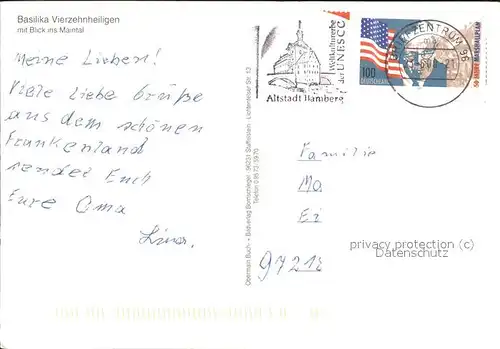 Basilika Vierzehnheiligen
mit Blick ins Maintal
Meine Lieben!
Viele liebe Grüße
aus dem schönen
Frankenland
sendet Euch
Eure Oma
Lina.
Obermain Buch- + Bildverlag Bornschlegel · 96231 Staffelstein · Lichtenfelser Str. 13
Telefon 09573-5970
Weltkulturerbe
der UNESCO
Altstadt Bamberg
BRIEFZENTRUM 96
100
50 JAHRE MARSHALLPLAN
Familie
Ma
Ei
privacy protection (c)
Datenschutz